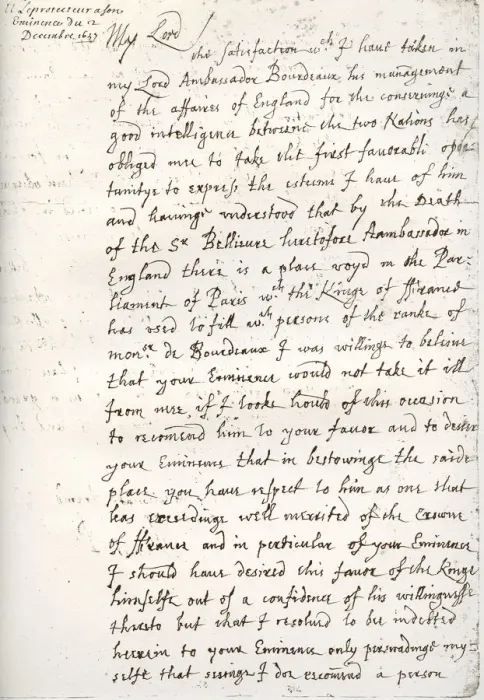 Le protecteur a son
Eminence du 2
Decembre 1657
My Lord
the satisfaction wch I have taken in
my Lord Ambassador Bourdeaux his management
of the affaires of England for the conservinge a
good intelligence betweene the two Nations has
obliged mee to take the first favorable opor
tunitye to express the esteeme I have of him
and havinge understood that by the Death
of the Sr Bellieure heretofore Aambassador in
England there is a place voyd in the Par-
liament of Paris wch the Kinge of ffrance
has used to fill wth persons of the ranke of
monsr de Bourdeaux I was willinge to believe
that your Eminence would not take it ill
from mee if I tooke hould of this occasion
to recomend him to your favor and to desire
your Eminence that in bestowinge the saide
place you have respect to him as one that
has exceedinge well merrited of the Crowne
of ffrance and in perticular of your Eminence
I should have desired this favor of the Kinge
himselfe out of a confidence of his willingnesse
thereto but that I resolved to be indebted
herein to your Eminence only perswadinge my
selfe that seeinge I doe recomend a person